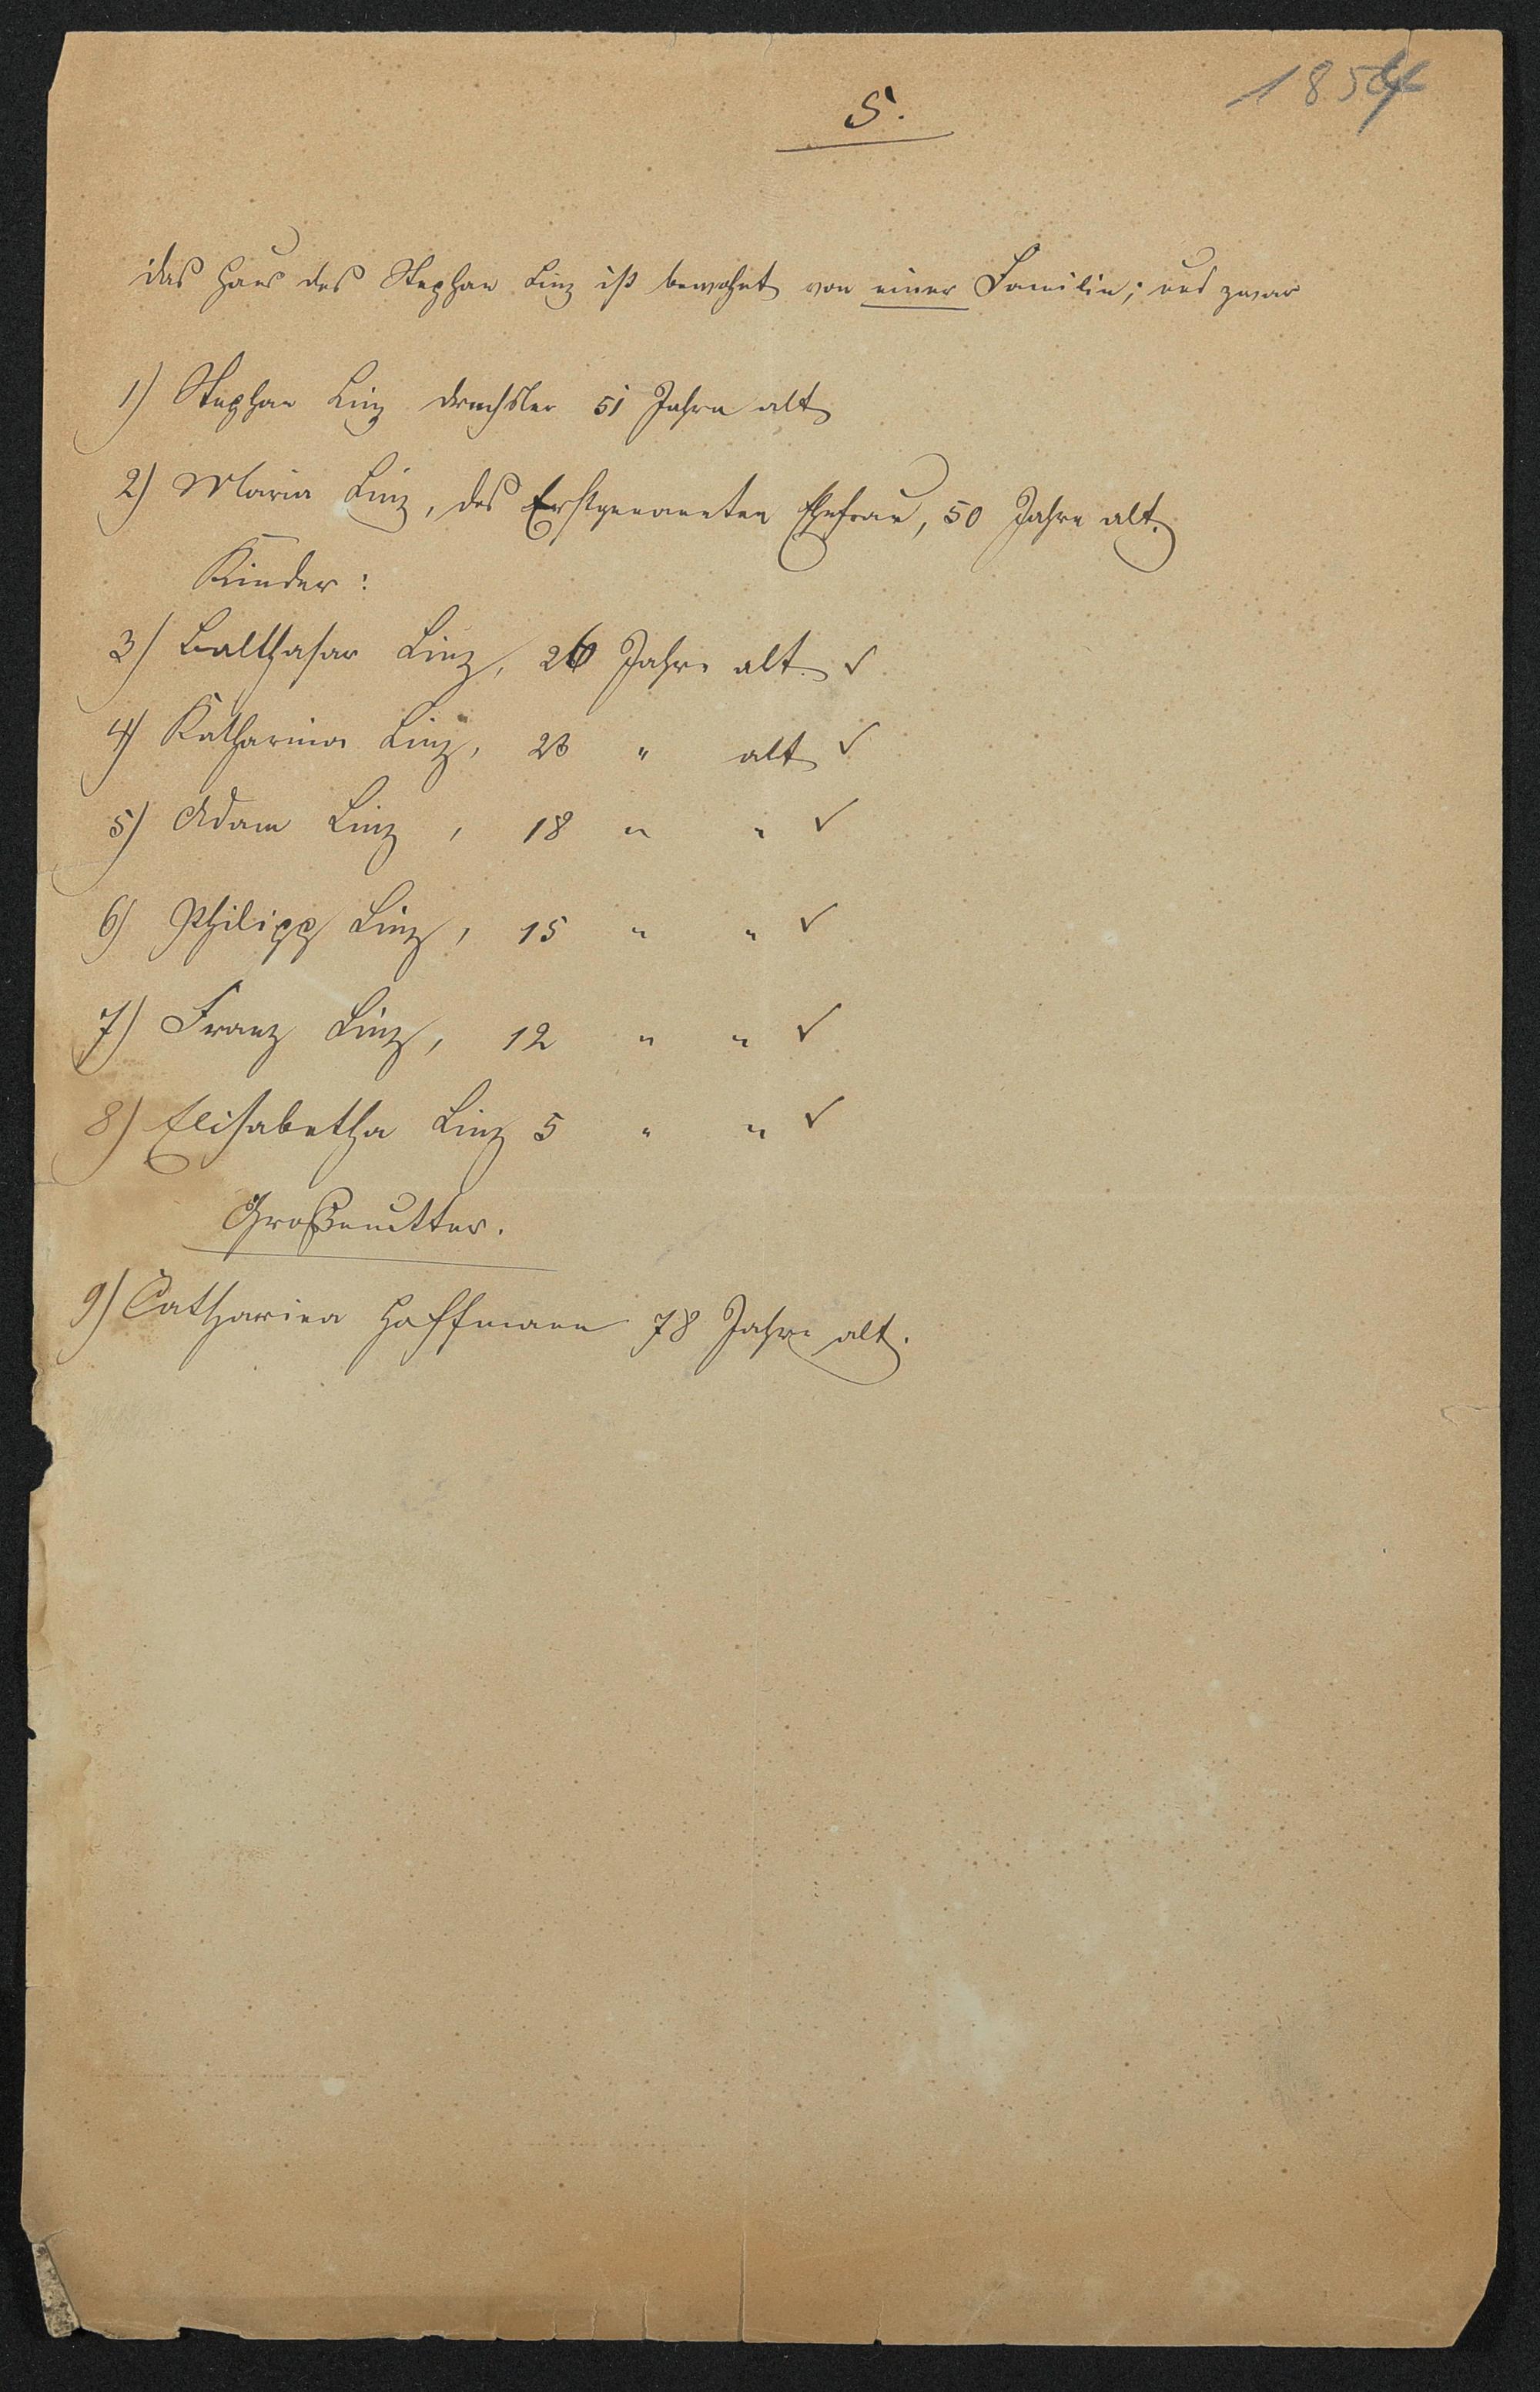 1854
5.
das Haus des Stephan Linz ist bewohnt von einer Familie; und zwar
1) Stephan Linz Drechsler 51 Jahre alt
2) Maria Linz, des Erstgenannten Ehefrau, 50 Jahre alt.
Kinder:
3) Balthasar Linz, 26 Jahre alt. ✓
4) Katharina Linz, " alt ✓
5) Adam Linz, 18 " " ✓
6) Philipp Linz, 15 " " ✓
7) Franz Linz, 12 " " ✓
8) Elisabetha Linz 5 " " ✓
Großmutter.
9) Catharina Hoffmann 78 Jahre alt.